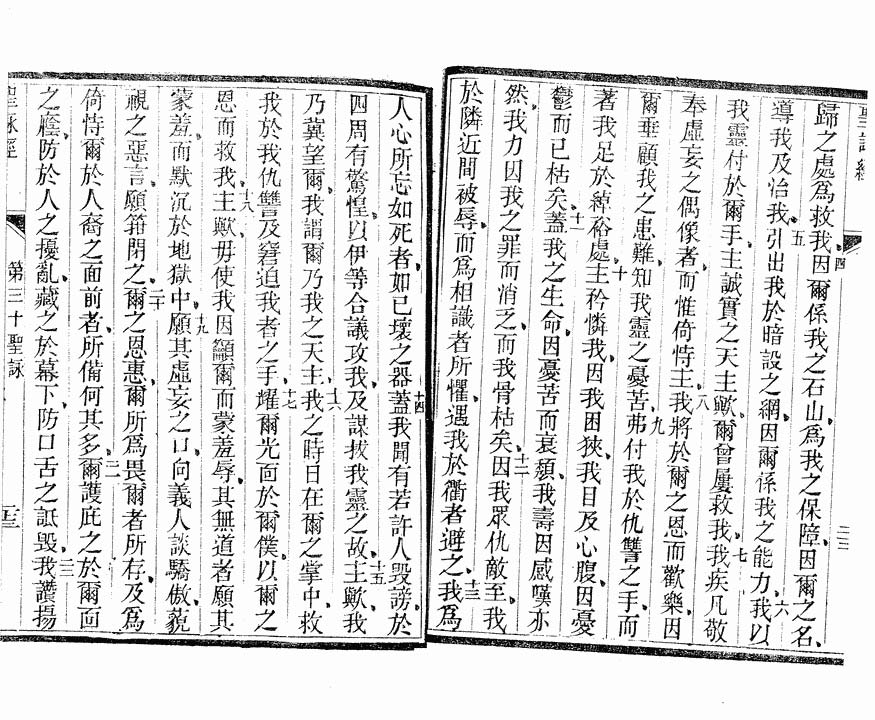 聖詠經
二三
歸之處爲救我四因爾係我之石山爲我之保障因爾之名
導我及治我五引出我於暗設之網因爾係我之能力六我以
我靈付於爾手主誠實之天主歟爾曾屢救我七我疾凡敬
奉虛妄之偶像者而惟倚恃主八我將於爾之恩而歡樂因
爾垂顧我之患難知我靈之憂苦九弗付我於仇讐之手而
著我足於綽裕處十主矜憐我因我困狹我目及心腹因憂
鬱而已枯矣十一蓋我之生命因憂苦而衰頹我壽因感嘆亦
然我力因我之罪而消乏而我骨枯矣十二因我眾仇敵至我
於隣近間被辱而爲相識者所懼遇我於衢者避之十三我爲
人心所忘如死者如已壞之器十四蓋我聞有若許人毀謗於
四周有驚惶以伊等合議攻我及謀拔我靈之故十五主歟我
乃冀望爾我謂爾乃我之天主十六我之時日在爾之掌中救
我於我仇讐及窘迫我者之手十七燿爾光面於爾僕以爾之
恩而救我十八主歟毋使我因籲爾而蒙羞辱其無道者願其
蒙羞而默沉於地獄中十九願其虛妄之口向義人談驕傲藐
視之惡言願箝閉之二十爾之恩惠爾所爲畏爾者所存及爲
倚恃爾於人裔之面前者所備何其多二一爾護庇之於爾面
之廕防於人之擾亂藏之於幕下防口舌之詆毀二二我讚揚
聖詠經
第三十聖詠
二三